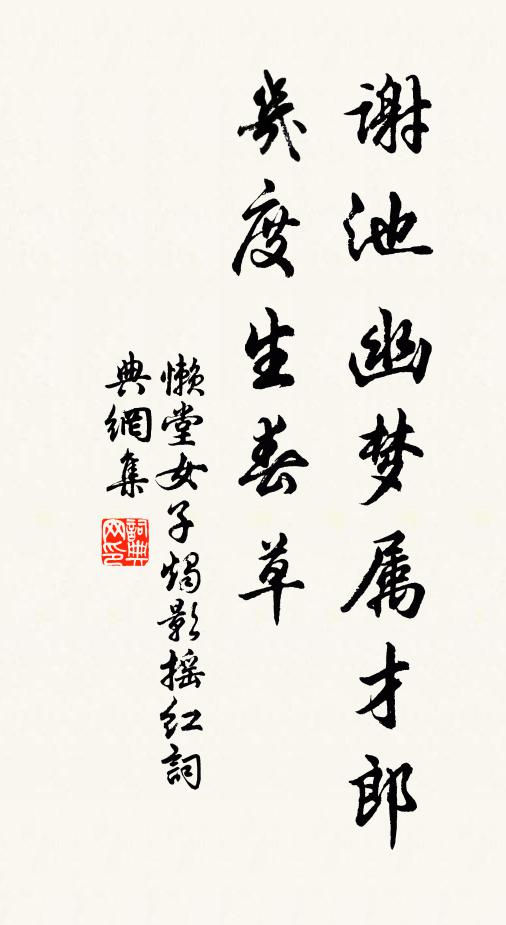 谢池幽梦属才郎
几度生春草
懒堂女子烛影摇红词
典網集
词典网印